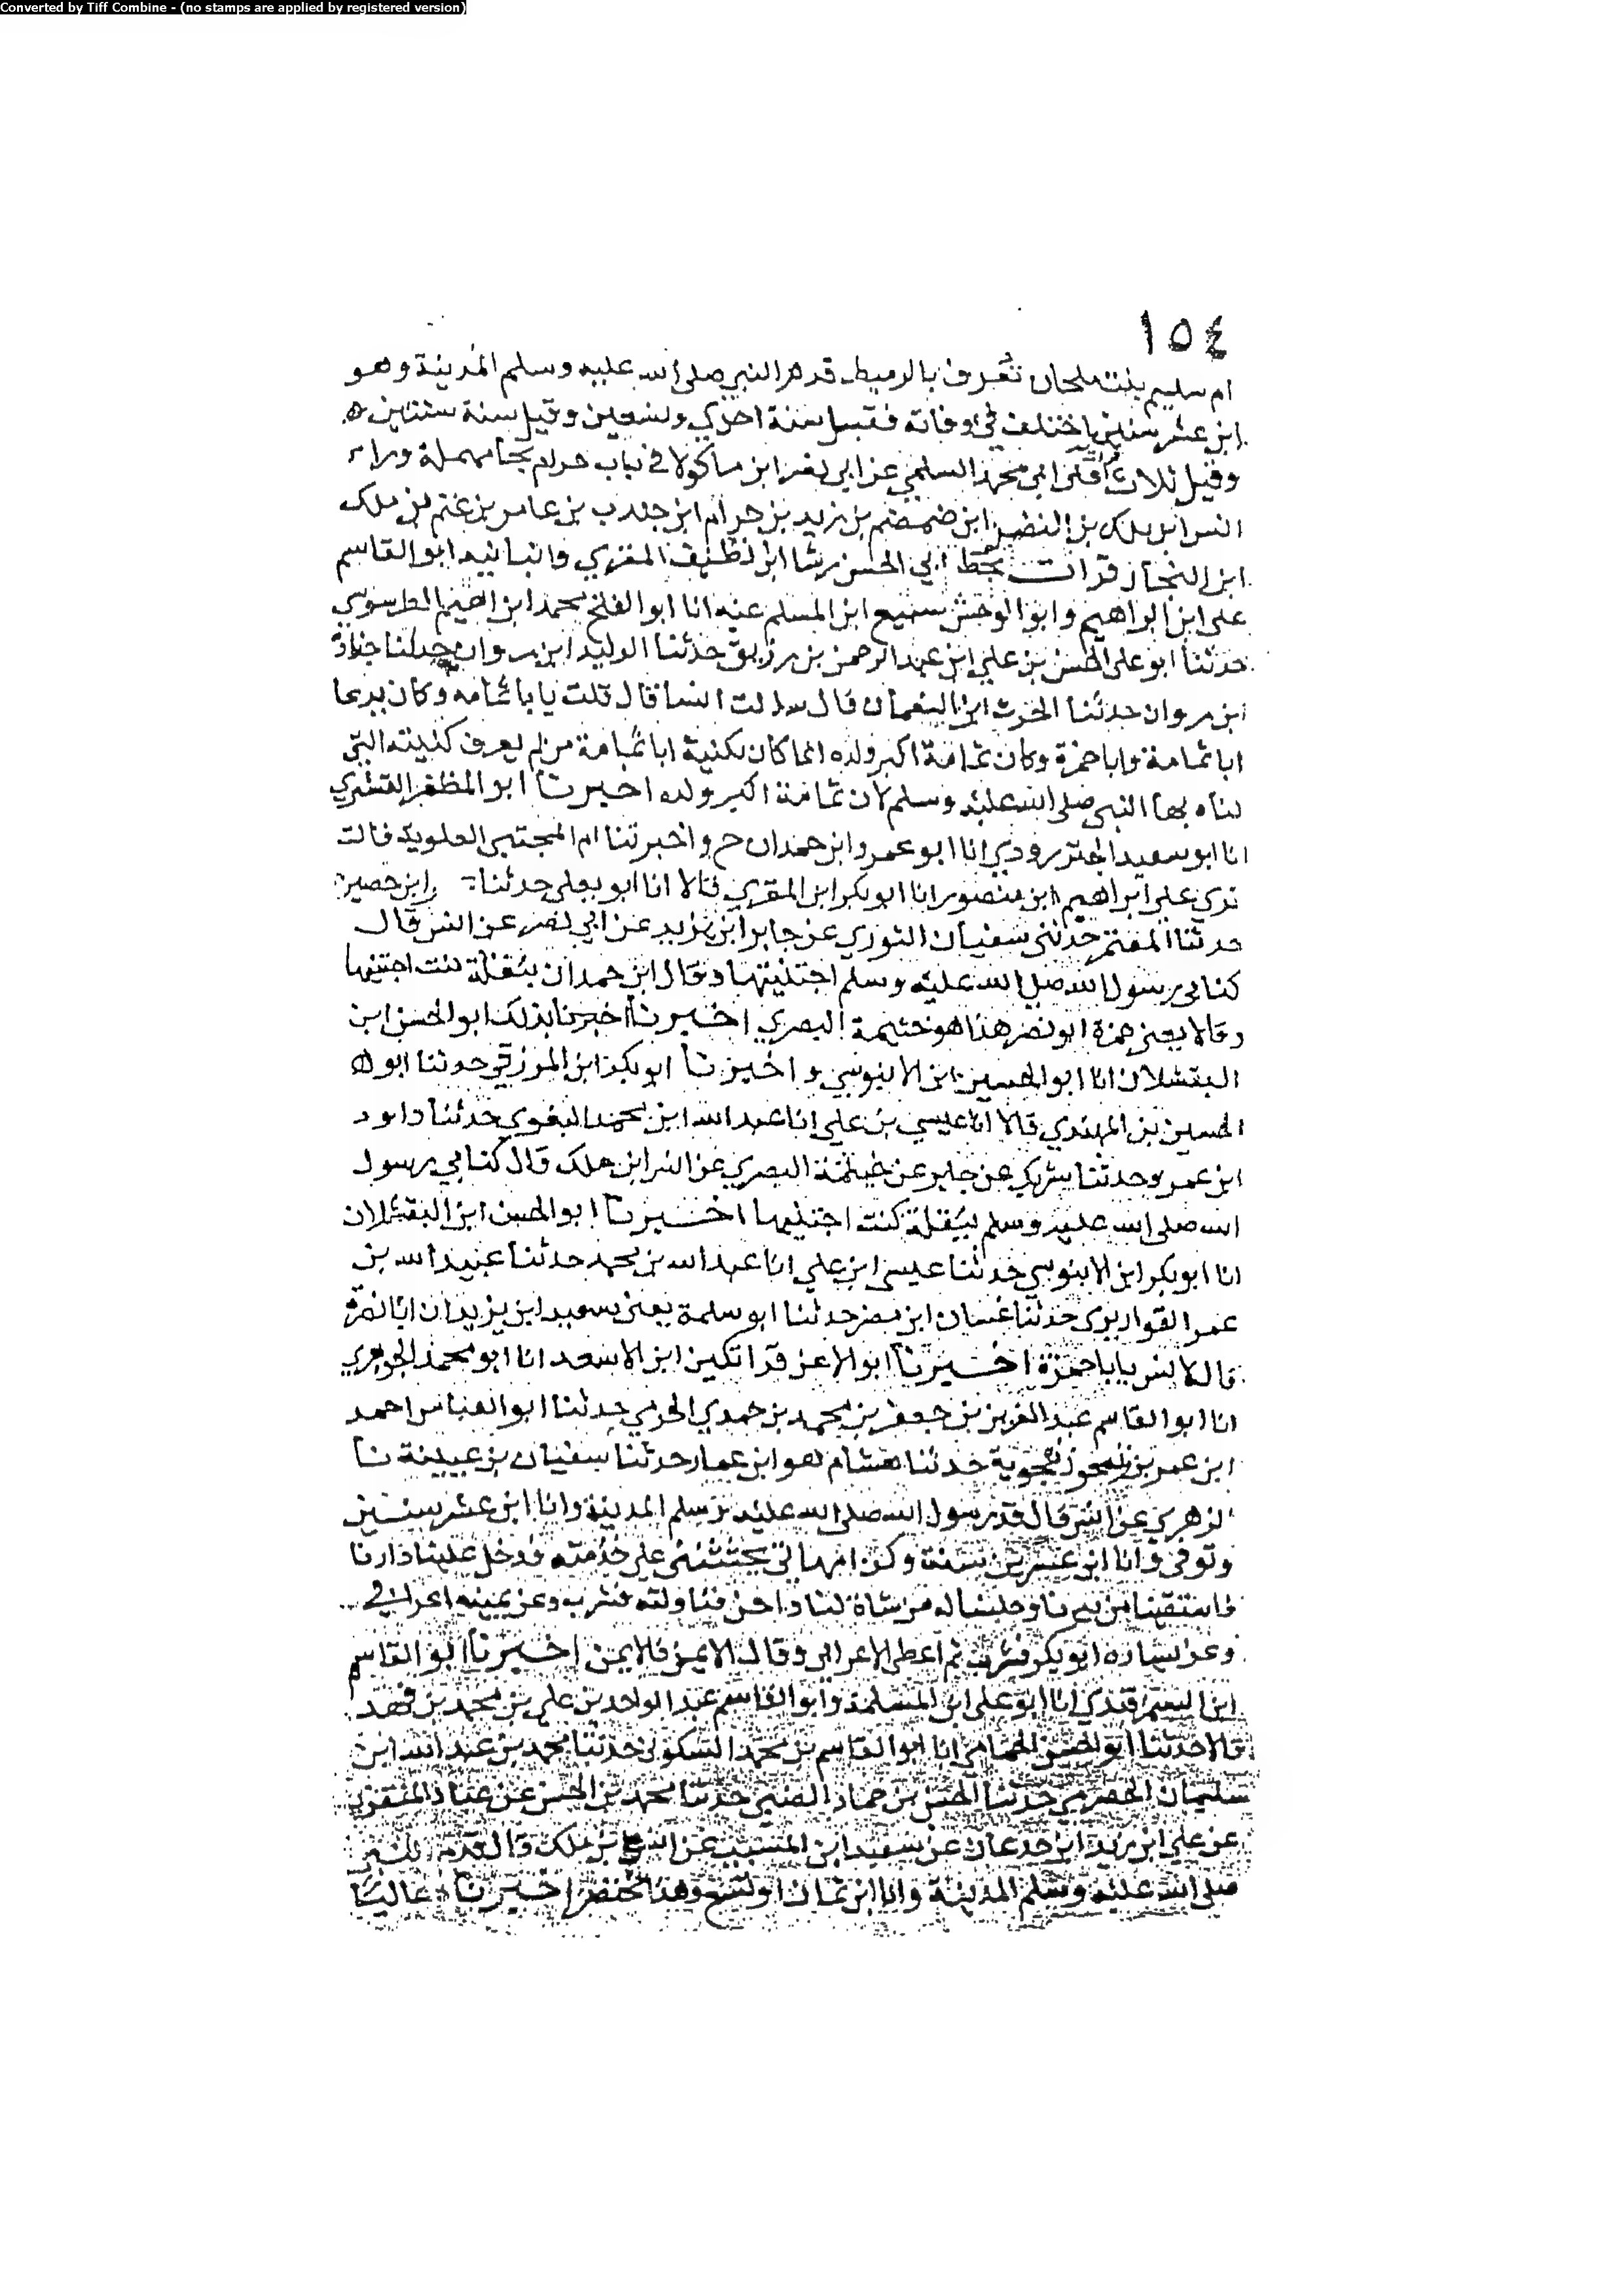 Converted by Tiff Combine - (no stamps are applied by registered version)
١٥٤
ام سليم بنت ملحان تعرف بالرميط قدم النبي صلى الله عليه وسلم المدينة وهو
ابن عشر سنين اختلف في وفاته فقيل سنة احدي وتسعين وقيل سنة سنتين
وقيل ثلاث علي ابي محمد السلمي عن ابي نصر ابن ماكولا في باب حرام بحا مهملة وراء
انس ابن ملك بن النضر ابن ضمضم بن زيد بن حرام ابن جندب بن عامر بن غنم بن ملك
ابن النجار قرات بخط ابي الحسن رشا ابن نظيف المقري وانبانيه ابو القاسم
علي ابن ابراهيم وابو الوحش سبيع ابن المسلم عنه انا ابو الفتح محمد ابن ابراهيم الطرسوسي
حدثنا ابو علي الحسن بن علي ابن عبد الرحمن بن مرزيق حدثنا الوليد ابن مروان حدثنا جنادة
ابن مروان حدثنا الحرث ابن النعمان قال سالت انسا قال قلت يابا ثمامه وكان يدعا
ابا ثمامة وابا حمزة وكان ثمامة اكبر ولده انما كان يكنية ابا ثمامة من لم يعرف كنيته التي
كناه بها النبي صلى الله عليه وسلم لان ثمامة اكبر ولده اخبرنا ابو المظفر القشيري
انا ابو سعيد الجنزرودي انا ابو عمرو ابن حمدان ح واخبرتنا ام المجتبى العلوية قالت
قري علي ابراهيم ابن منصور انا ابو بكر ابن المقري قالا انا ابو يعلى حدثنا ابن حصين
حدثنا المعتمر حدثني سفيان الثوري عن جابر ابن يزيد عن ابي نصر عن انس قال
كناني رسول الله صلى الله عليه وسلم اجتنيتها وقال ابن حمدان ببقلة كنت اجتنيها
وقالا يعني حمزة ابو نصر هذا هو خيثمة البصري اخبرنا اخبرنا بذلك ابو الحسن ابن
البقشلان انا ابو الحسين ابن الابنوسي و اخبرنا ابو بكر ابن المزرقي حدثنا ابو
الحسين بن المهتدي قالا انا عيسي بن علي انا عبد الله ابن محمد البغوي حدثنا داود
ابن عمرو حدثنا شريك عن جابر عن خيثمة البصري عن انس ابن ملك قال كناني رسول
الله صلى الله عليه وسلم ببقلة كنت اجتنيها اخبرنا ابو الحسن ابن البقشلان
انا ابو بكر ابن الابنوسي حدثنا عيسى ابن علي انا عبد الله بن محمد حدثنا عبيد الله بن
عمر القواريري حدثنا غسان ابن مضر حدثنا ابو سلمة يعني سعيد ابن يزيد ان ابا نضرة
قال لانس يابا حمزة اخبرنا ابو الاعز قراتكين ابن الاسعد انا ابو محمد الجوهري
انا ابو القاسم عبد العزيز بن جعفر بن محمد بن حمدي الخرقي حدثنا ابو العباس احمد
ابن عمر بن زنجويه حدثنا هشام هو ابن عمار حدثنا سفيان بن عيينة نا
الزهري عن انس قال قدم رسول الله صلى الله عليه وسلم المدينة وانا ابن عشر سنين
وتوفي وانا ابن عشرين سنة وكن امهاتي يحثثنني على خدمته فدخل علينا دارنا
فاستقينا من بيرنا وحلبنا له من شاة لنا داجن فناولته فشرب وعن يمينه اعرابي
وعن يساره ابو بكر فشرب ثم اعطى الاعرابي وقال الايمن فالايمن اخبرنا ابو القاسم
ابن السمرقندي انا ابو علي ابن المسلمة وابو القاسم عبد الواحد بن علي بن محمد بن فهد
قالا حدثنا ابو الحسن الحمامي انا ابو القاسم بن محمد السكوني حدثنا محمد بن عبد الله ابن
سليمان الحضرمي حدثنا الحسن بن حماد الضبي حدثنا محمد بن الحسن عن عباد المنقري
عن علي ابن زيد ابن جدعان عن سعيد ابن المسيب عن انس بن ملك قال قدم النبي
صلى الله عليه وسلم المدينة وانا ابن ثمان او تسع وهذا مختصر اخبرنا عاليا